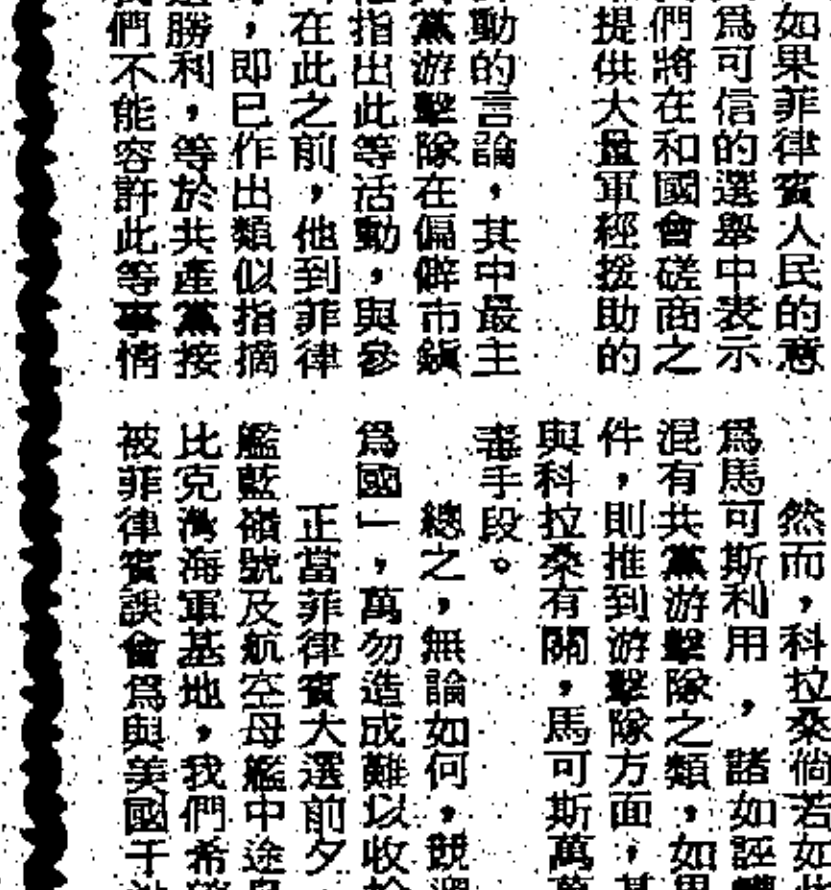 如果菲律賓人民的意
爲可信的選舉中表示
們將在和國會磋商之
提供大量軍經援助的
動的言論，其中最主
黨游擊隊在偏僻市鎭
指出此等活動，與參
在此之前，他到菲律
，即已作出類似指摘
勝利，等於共產黨接
們不能容許此等事情
然而，科拉桑倘若如
爲馬可斯利用，諸如誣
混有共黨游擊隊之類，如
件，則推到游擊隊方面，
與科拉桑有關，馬可斯萬
毒手段。
總之，無論如何，競
爲國」，萬勿造成難以收
正當菲律賓大選前夕，
艦藍嶺號及航空母艦中途
比克灣海軍基地，我們希
被菲律賓誤會爲與美國干